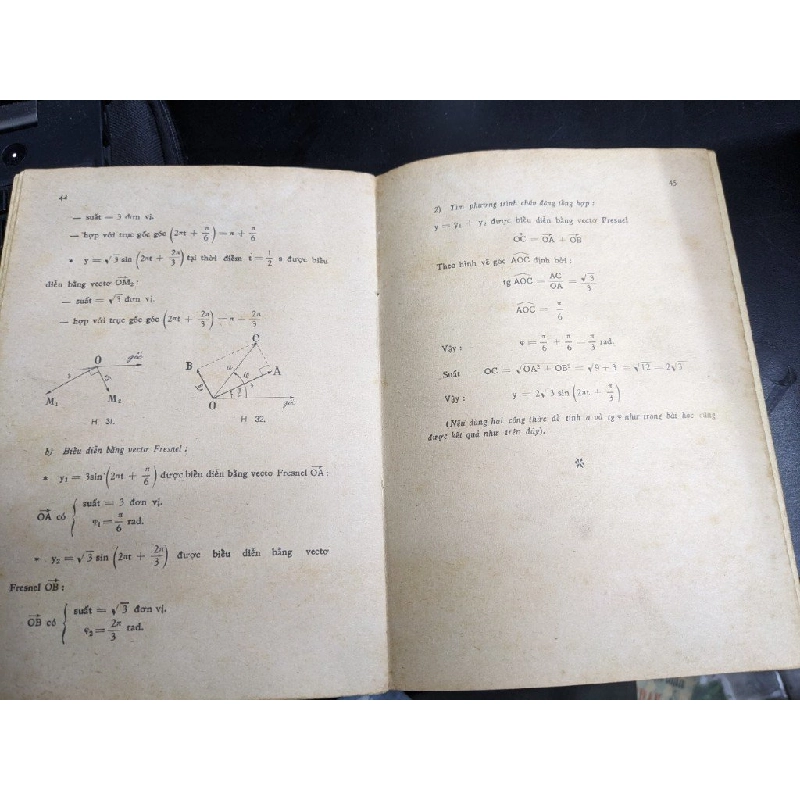 44
— suất = 3 đơn vị.
— hợp với trục gốc góc (2πt + π/6) = π + π/6
* y = √3 sin (2πt + 2π/3) tại thời điểm t = 1/2 s được biểu
diễn bằng vectơ OM₂ :
— suất = √3 đơn vị.
— hợp với trục gốc góc (2πt + 2π/3) = π + 2π/3
O gốc
M₁ M₂
H 31.
C
B A
O gốc
H 32.
b) Biểu diễn bằng vectơ Fresnel :
* y₁ = 3sin (2πt + π/6) được biểu diễn bằng vectơ Fresnel OA :
OA có { suất = 3 đơn vị.
φ₁ = π/6 rad.
* y₂ = √3 sin (2πt + 2π/3) được biểu diễn bằng vectơ
Fresnel OB :
OB có { suất = √3 đơn vị.
φ₂ = 2π/3 rad.
45
2) Tìm phương trình chấn động tổng hợp :
y = y₁ + y₂ được biểu diễn bằng vectơ Fresnel
OC = OA + OB
Theo hình vẽ góc AOC định bởi :
tg AOC = AC/OA = √3/3
AOC = π/6
Vậy : φ = π/6 + π/6 = π/3 rad.
Suất OC = √OA² + OB² = √9 + 3 = √12 = 2√3
Vậy : y = 2√3 sin (2πt + π/3)
(Nếu dùng hai công thức để tính a và tg φ như trong bài học cũng
được kết quả như trên đây).